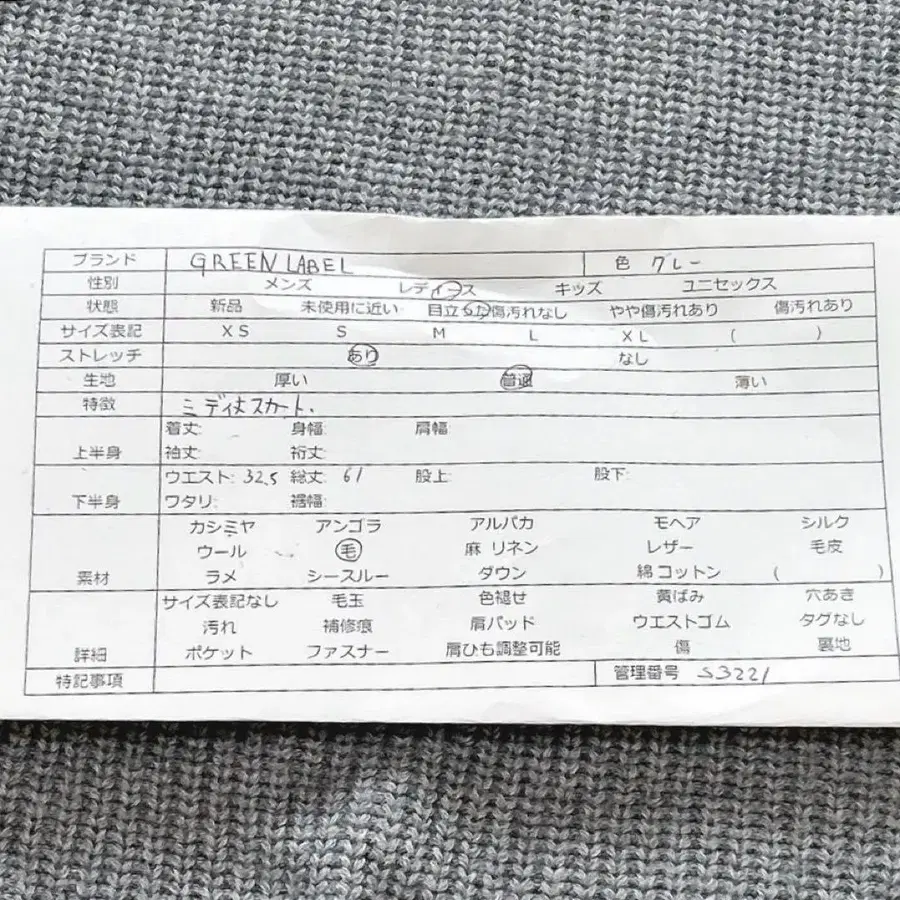 ブランド GREEN LABEL 色 グレー
性別 メンズ レディース キッズ ユニセックス
状態 新品 未使用に近い 目立った傷汚れなし やや傷汚れあり 傷汚れあり
サイズ表記 XS S M L XL ( )
ストレッチ あり なし
生地 厚い 普通 薄い
特徴 ミディ丈スカート.
着丈: 身幅: 肩幅:
上半身 袖丈: 裄丈:
ウエスト: 32.5 総丈: 61 股上: 股下:
下半身 ワタリ: 裾幅:
カシミヤ アンゴラ アルパカ モヘア シルク
ウール 毛 麻 リネン レザー 毛皮
素材 ラメ シースルー ダウン 綿 コットン ( )
サイズ表記なし 毛玉 色褪せ 黄ばみ 穴あき
汚れ 補修痕 肩パッド ウエストゴム タグなし
詳細 ポケット ファスナー 肩ひも調整可能 傷 裏地
特記事項 管理番号 S3221